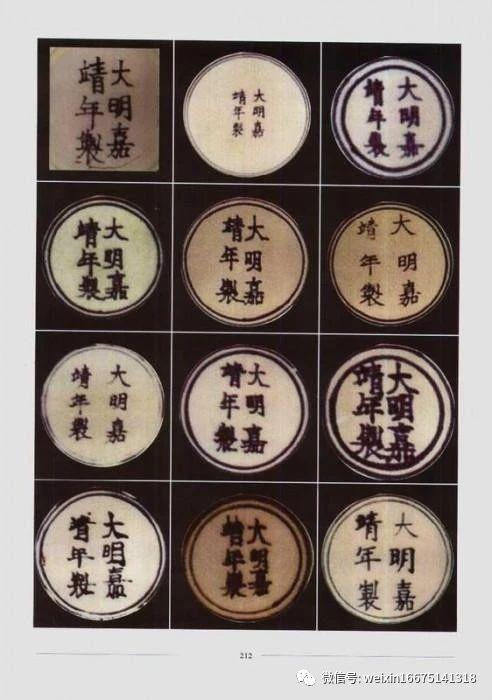 大明嘉
靖年製
大明嘉
靖年製
大明嘉
靖年製
大明嘉
靖年製
大明嘉
靖年製
大明嘉
靖年製
大明嘉
靖年製
大明嘉
靖年製
大明嘉
靖年製
大明嘉
靖年製
大明嘉
靖年製
大明嘉
靖年製
212
微信号: weixin16675141318